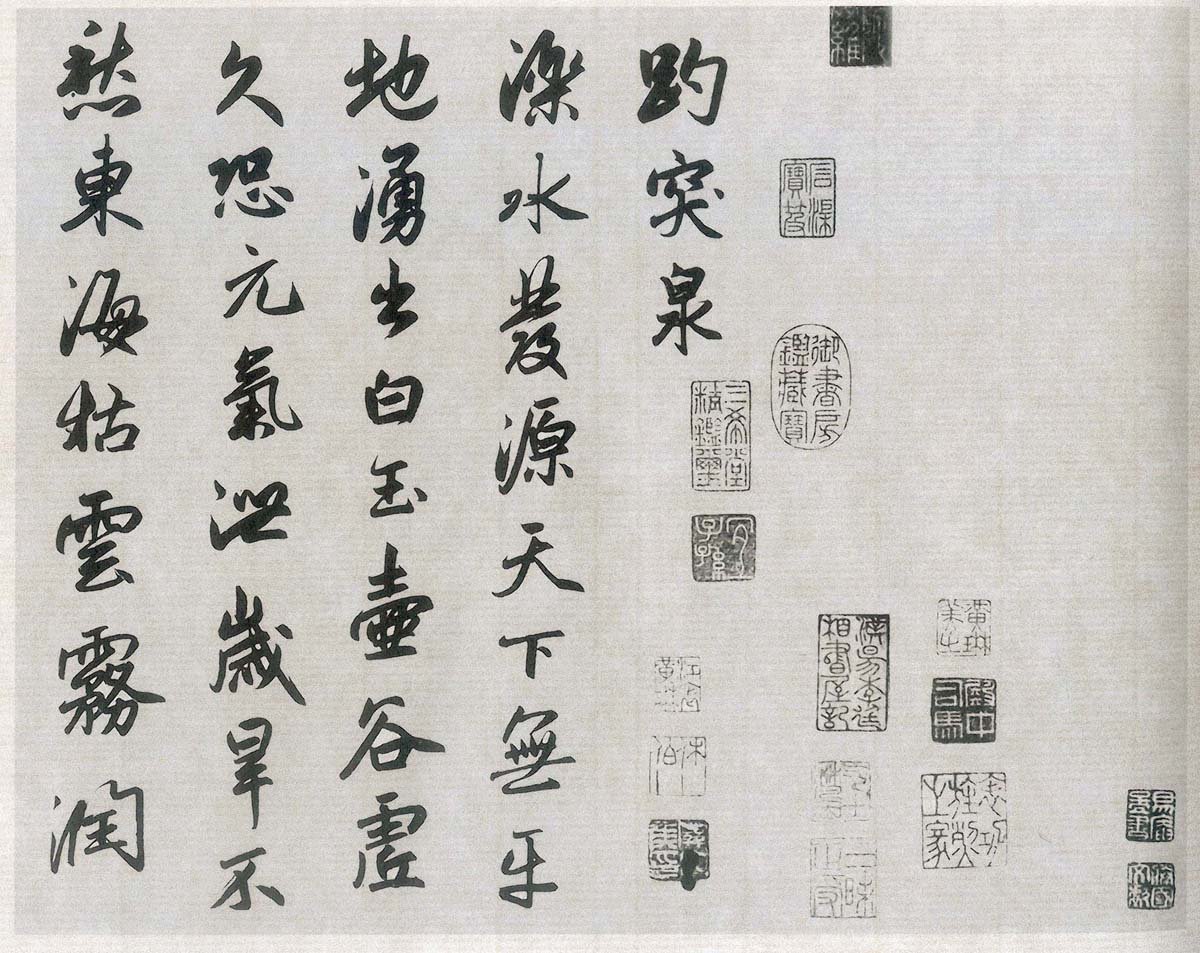 趵突泉
濼水發源天下無平
地湧出白玉壺谷虛
久恐元氣泄歲旱不
愁東海枯雲霧潤
御書房鑑藏寶
三希堂精鑑璽
宜子孫